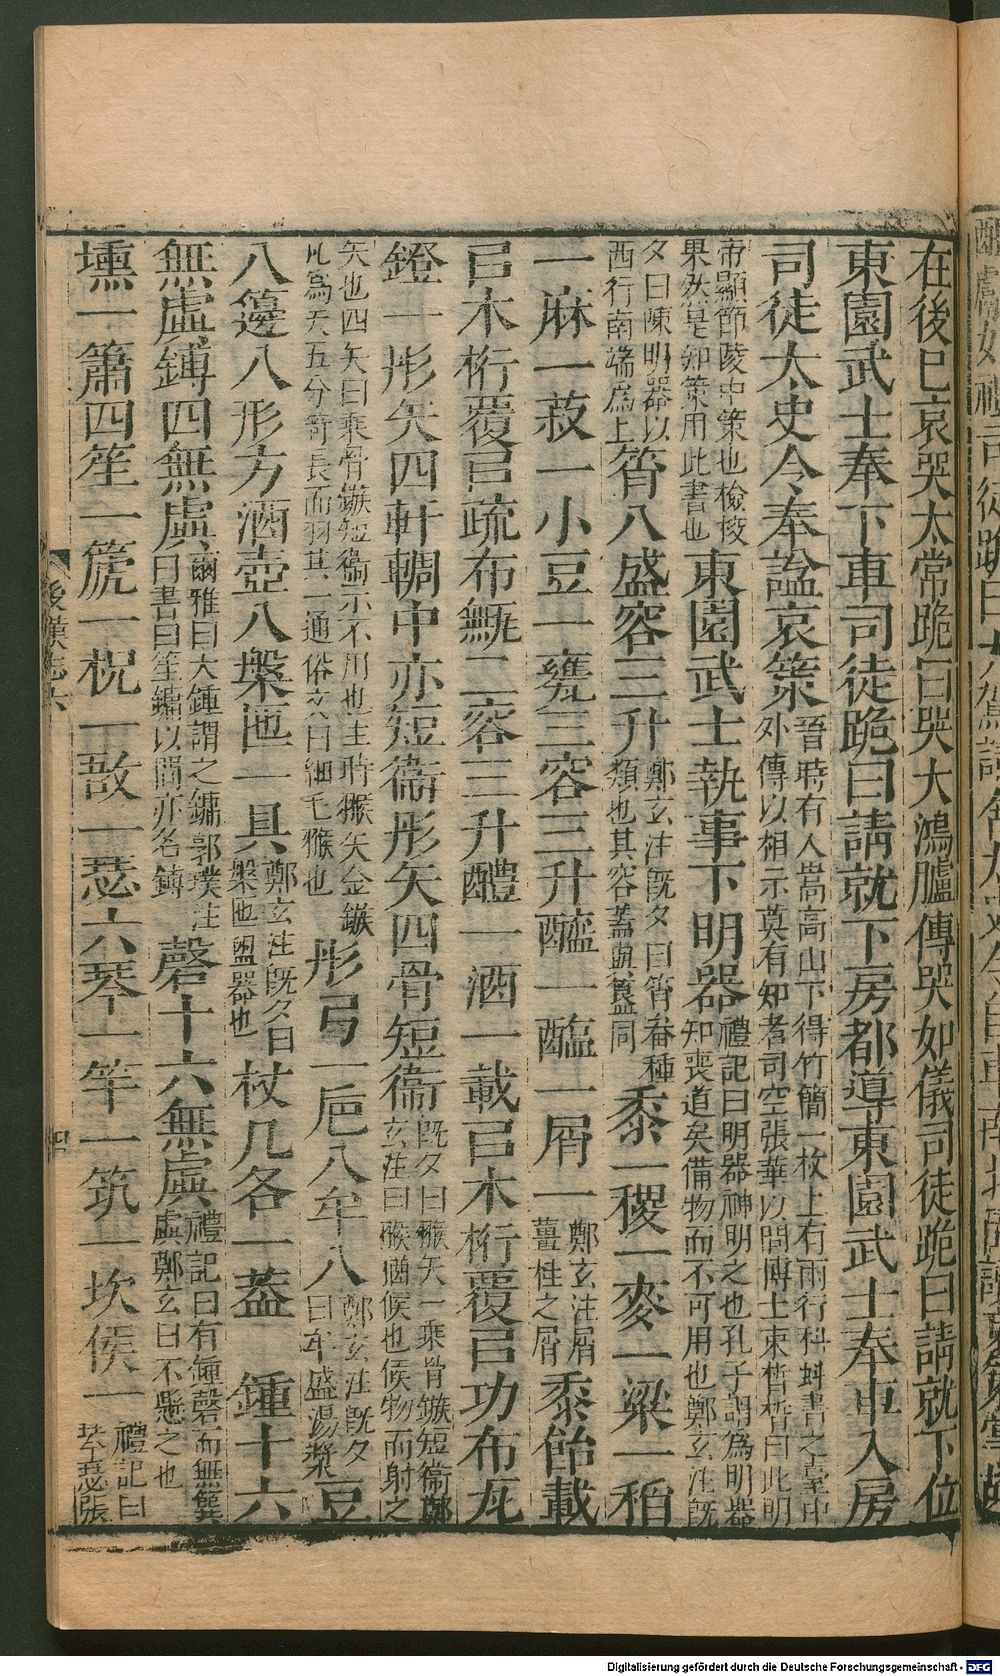 在後已哀哭太常跪曰哭大鴻臚傳哭如儀司徒跪曰請就下位
東園武士奉下車司徒跪曰請就下房都導東園武士奉車入房
司徒太史令奉謚哀策晉時有人嵩高山下得竹簡一枚上有兩行科斗書之臺中
外傳以相示莫有知者司空張華以問博士束晳晳曰此明
帝顯節陵中策也檢校
果然是知策用此書也東園武士執事下明器禮記曰明器神明之也孔子謂為明器
知喪道矣備物而不可用也鄭玄注既
夕曰陳明器以
西行南端為上筲八盛容三升鄭玄注既夕曰筲畚種
類也其容蓋與簋同黍一稷一麥一粱一稻
一麻一菽一小豆一甕三容三升醯一醢一屑一鄭玄注屑
薑桂之屑黍飴載
㠯木桁覆㠯疏布甒二容三升醴一酒一載㠯木桁覆㠯功布瓦
鐙一彤矢四軒輖中亦短衞彤矢四骨短衞既夕曰猴矢一乘骨鏃短衞鄭
玄注曰猴猶候也候物而射之
矢也四矢曰乘骨鏃短衞示不用也生時猴矢金鏃
凡為矢五分笴長而羽其一通俗文曰細毛猴也彤弓一巵八牟八鄭玄注既夕
曰牟盛湯漿豆
八籩八形方酒壺八槃匜一具鄭玄注既夕曰
槃匜盥器也杖几各一蓋一鍾十六
無虡鎛四無虡爾雅曰大鍾謂之鏞郭璞注
曰書曰笙鏞以間亦名鎛磬十六無虡禮記曰有鐘磬而無簨
虡鄭玄曰不懸之也
壎一簫四笙一篪一柷一敔一瑟六琴一竽一筑一坎侯一禮記曰
琴瑟張
後漢志六
四
Digitalisierung gefördert durch die Deutsche Forschungsgemeinschaft - DFG